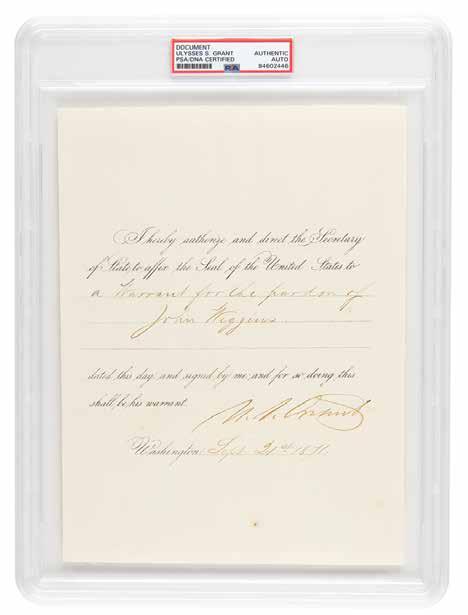 DOCUMENT
ULYSSES S. GRANT AUTHENTIC
PSA/DNA CERTIFIED AUTO
84602446
I hereby authorize and direct the Secretary
of State to affix the Seal of the United States to
a Warrant for the pardon of
John Wiggins.
dated this day, and signed by me, and for so doing this
shall be his warrant.
U. S. Grant
Washington, Sept. 21st 1871.